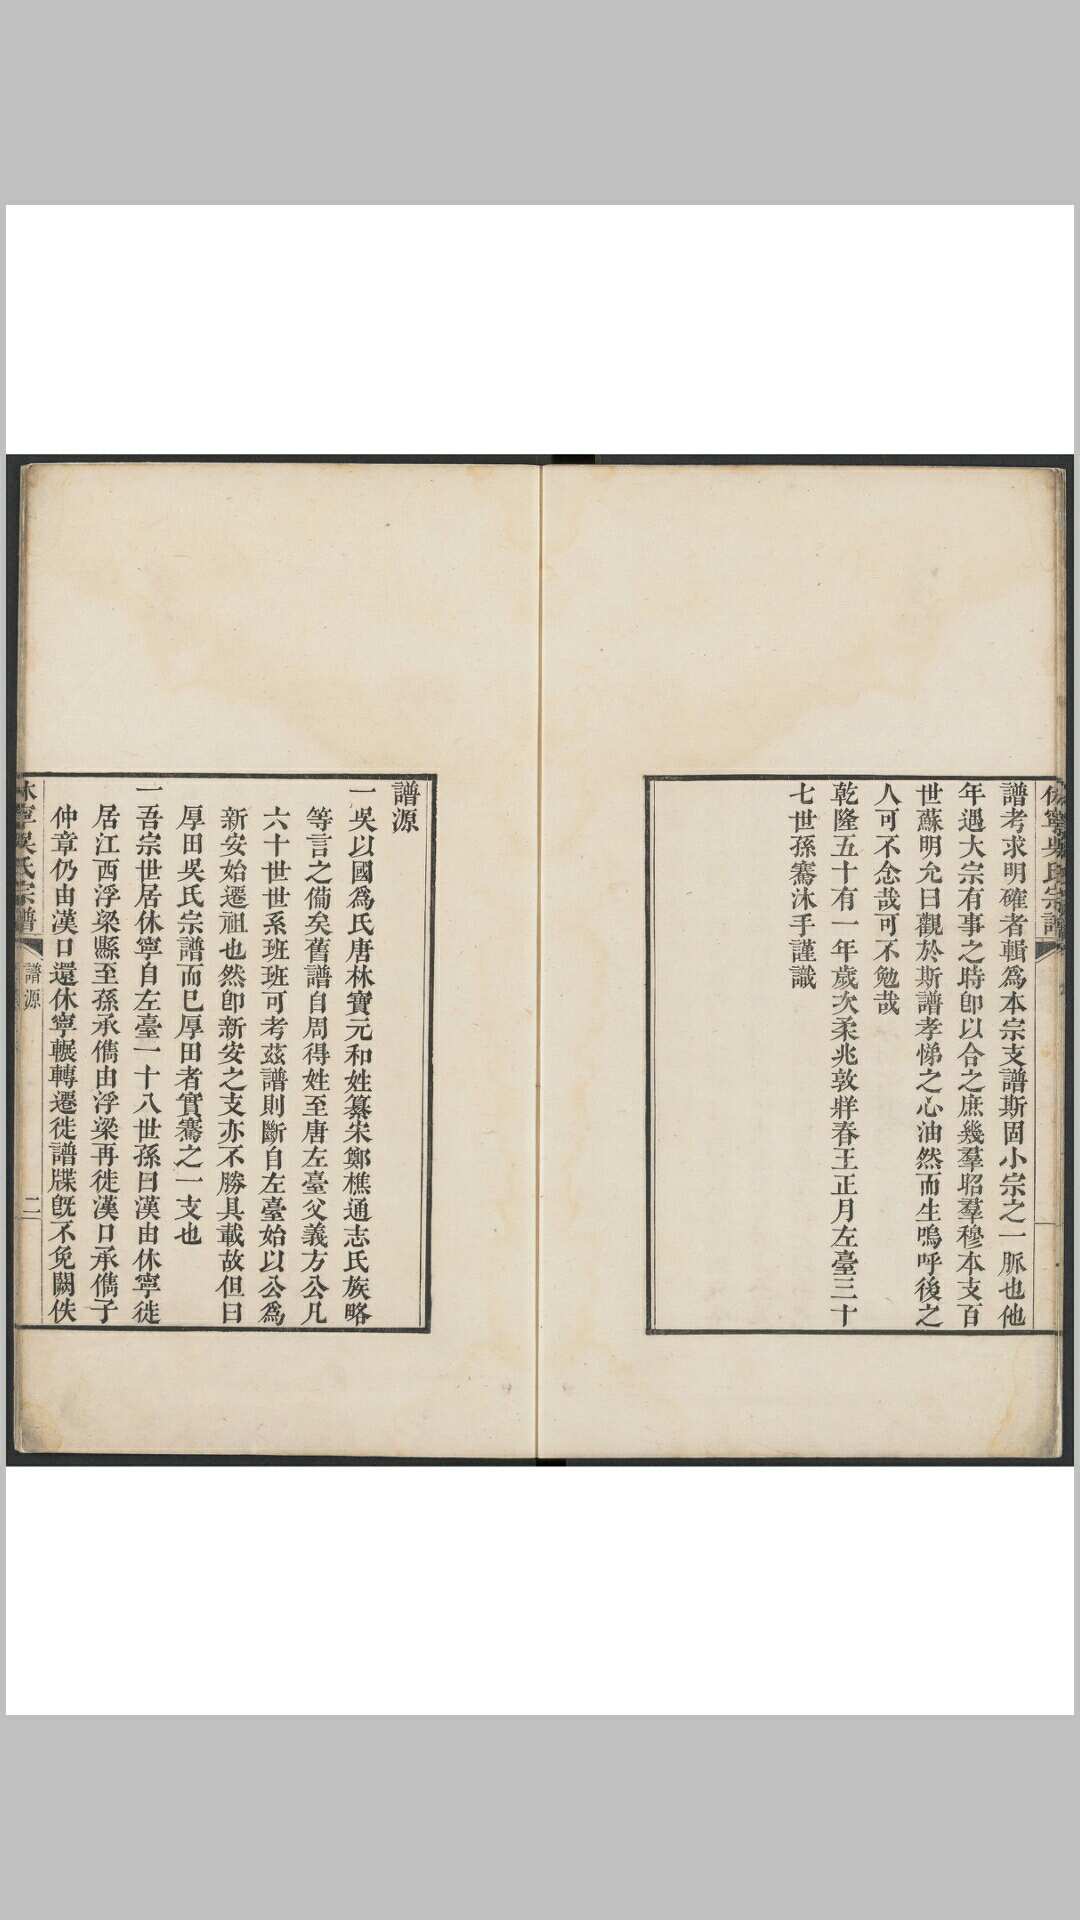 休寧吳氏宗譜
譜考求明確者輯爲本宗支譜斯固小宗之一脈也他
年遇大宗有事之時卽以合之庶幾羣昭羣穆本支百
世蘇明允曰觀於斯譜孝悌之心油然而生嗚呼後之
人可不念哉可不勉哉
乾隆五十有一年歲次柔兆敦牂春王正月左臺三十
七世孫騫沐手謹識
譜源
一吳以國爲氏唐林寶元和姓纂宋鄭樵通志氏族略
等言之備矣舊譜自周得姓至唐左臺父義方公凡
六十世世系班班可考茲譜則斷自左臺始以公爲
新安始遷祖也然卽新安之支亦不勝具載故但曰
厚田吳氏宗譜而已厚田者實騫之一支也
一吾宗世居休寧自左臺一十八世孫曰漢由休寧徙
居江西浮梁縣至孫承儁由浮梁再徙漢口承儁子
仲章仍由漢口還休寧輾轉遷徙譜牒旣不免闕佚
休寧吳氏宗譜
譜源
二